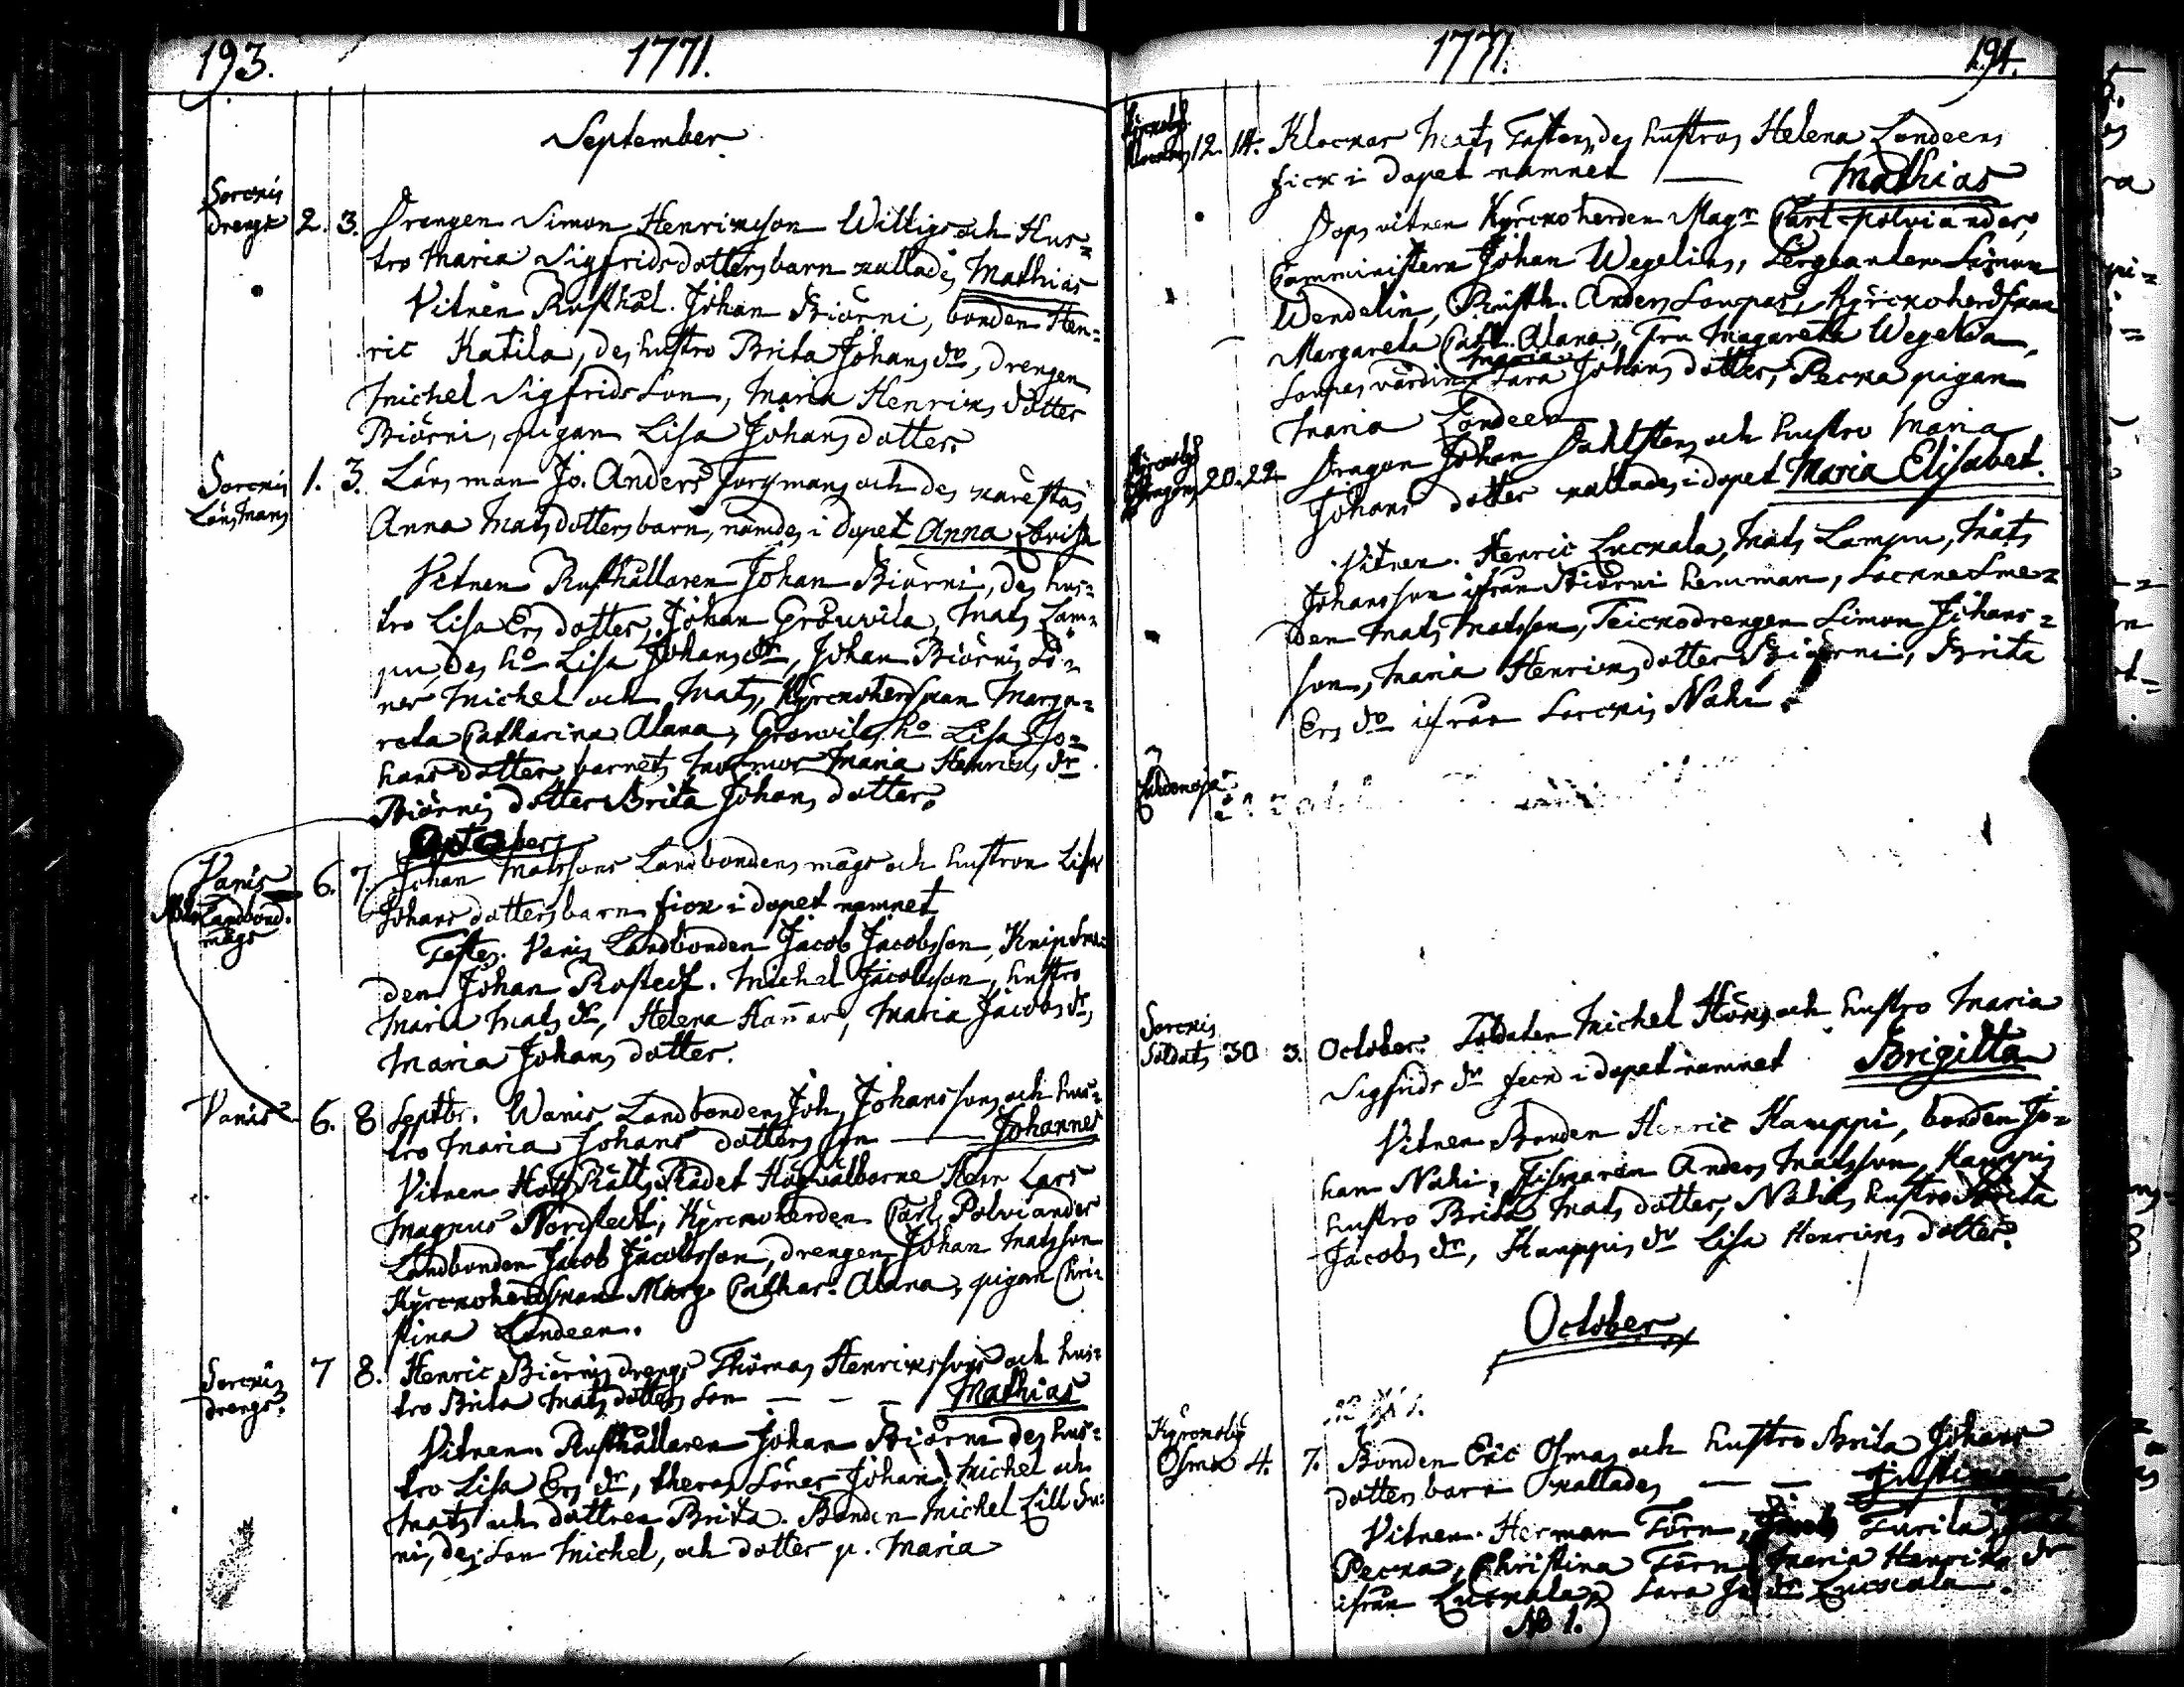 193.
1771.
September
Sorcnis
drengs 2. 3. Drengen Simon Henricsson Willigs och Hus=
tro Maria Sigfridsdotters barn kallades Mathias
Vitnen Rusthål. Johan Biörni, bonden Hen=
ric Katila, des hustro Brita Johans dr, drengen
Michel Sigfrids Son, Maria Henrics dotter
Biörni, pigan Lisa Johans dotter.
Sorcnis
Länsmans 1. 3. Länsman Jo. Anders och des käresta
Anna Mats dotters barn, namdes i dopet Anna Lovisa
Vitnen Rusthållaren Johan Biörni, des hus=
tro Lisa Ers dotter, Johan Gröuvila, Mats Lam=
pu, des ho Lisa Johans dr, Johan Biörnis Sö=
ner Michel och Mats, Kyrckoherdskan Marga=
reta Catharina Alana, Grouvilas ho Lisa Jo=
hans dotter, barnets mormor Maria Henrics dr
Biörnis dotter Brita Johans dotter.
October
Vanis
Landbond.
mågs 6. 7. Johan Matssons Landbondens mågs och hustron Lisa
Johans dotters barn fick i dopet namnet
Testes. Vanis Landbonden Jacob Jacobsson, Knipsme=
den Johan Rostedt. Michel Jacobsson, hustro
Maria Mats dr, Helena Hammar, Maria Jacobs dr,
Maria Johans dotter.
Vanis 6. 8 Septbr. Wanis Landbondens Joh. Johanssons och hus=
tro Maria Johans dotters son — Johannes
Vitnen Hofrätts Rådet Högvälborne Herr Lars
Magnus Nordstedt, Kyrckoherden Carl Polviander
Landbonden Jacob Jacobsson, drengen Johan Matsson
Kyrckoherdskan Marg. Cathar. Alana, pigan Chri=
stina Londeen.
Sorcnis
drengs. 7 8. Henric Biörnis drengs Thomas Henricssons och hus=
tro Brita Mats dotters Son — — — Mathias
Vitnen. Rusthållaren Johan Biörni des hus=
tro Lisa Ers dr, theras Söner Johan, Michel och
Mats och dottren Brita. Bonden Michel Lill Su=
ni, des Son Michel, och dotter p. Maria
1771.
194.
Kyrckoby
Klockars 12. 14. Klockar Mats Testens, des hustros Helena Londeens
fick i dopet namnet — Mathias
Dops vitnen Kyrckoherden Magr Carl Polviander,
Comministern Johan Wegelius, Sergeanten Simon
Wendelin, Rusth. Anders Soupas, Kyrckoherdskan
Margareta Cath. Alana, Fru Magareta Wegelia,
Maria
Soupas värdinna Sara Johans dotter, Pecka pigan
Maria Londeen
Kyrckoby
Dragons 20. 22. Dragon Johan Dahlstens och hustro Maria
Johans dotter kallades i dopet Maria Elisabet.
Vitnen. Henric Luckala, Mats Lampu, Mats
Johansson ifrån Biörni hemman, Sockne Sme=
den Mats Matsson, Teickodrengen Simon Johans=
son, Maria Henrics dotter Biörni, Brita
Ers dr ifrån Sorcnis Nähi.
Sorcnis
Soldats 30 3. October. Soldaten Michel Höns och hustro Maria
Sigfrids dr feck i dopet namnet Brigitta
Vitnen Bonden Henric Kauppi, bonden Jo=
han Nähi, Fiskaren Anders Matsson, Kauppis
hustro Brita Mats dotter, Nähis hustro Brita
Jacobs dr, Kauppis dr Lisa Henrics dotter.
October
Kyrckoby
Osma 4. 7. Bonden Eric Osmas och hustro Brita Johans
dotters barn kallades — — Justina
Vitnen. Herman Törn, Turila,
Pecka, Christina Törn, Maria Henrics dr
ifrån Luckala, Sara dr Luckala.
No 1.